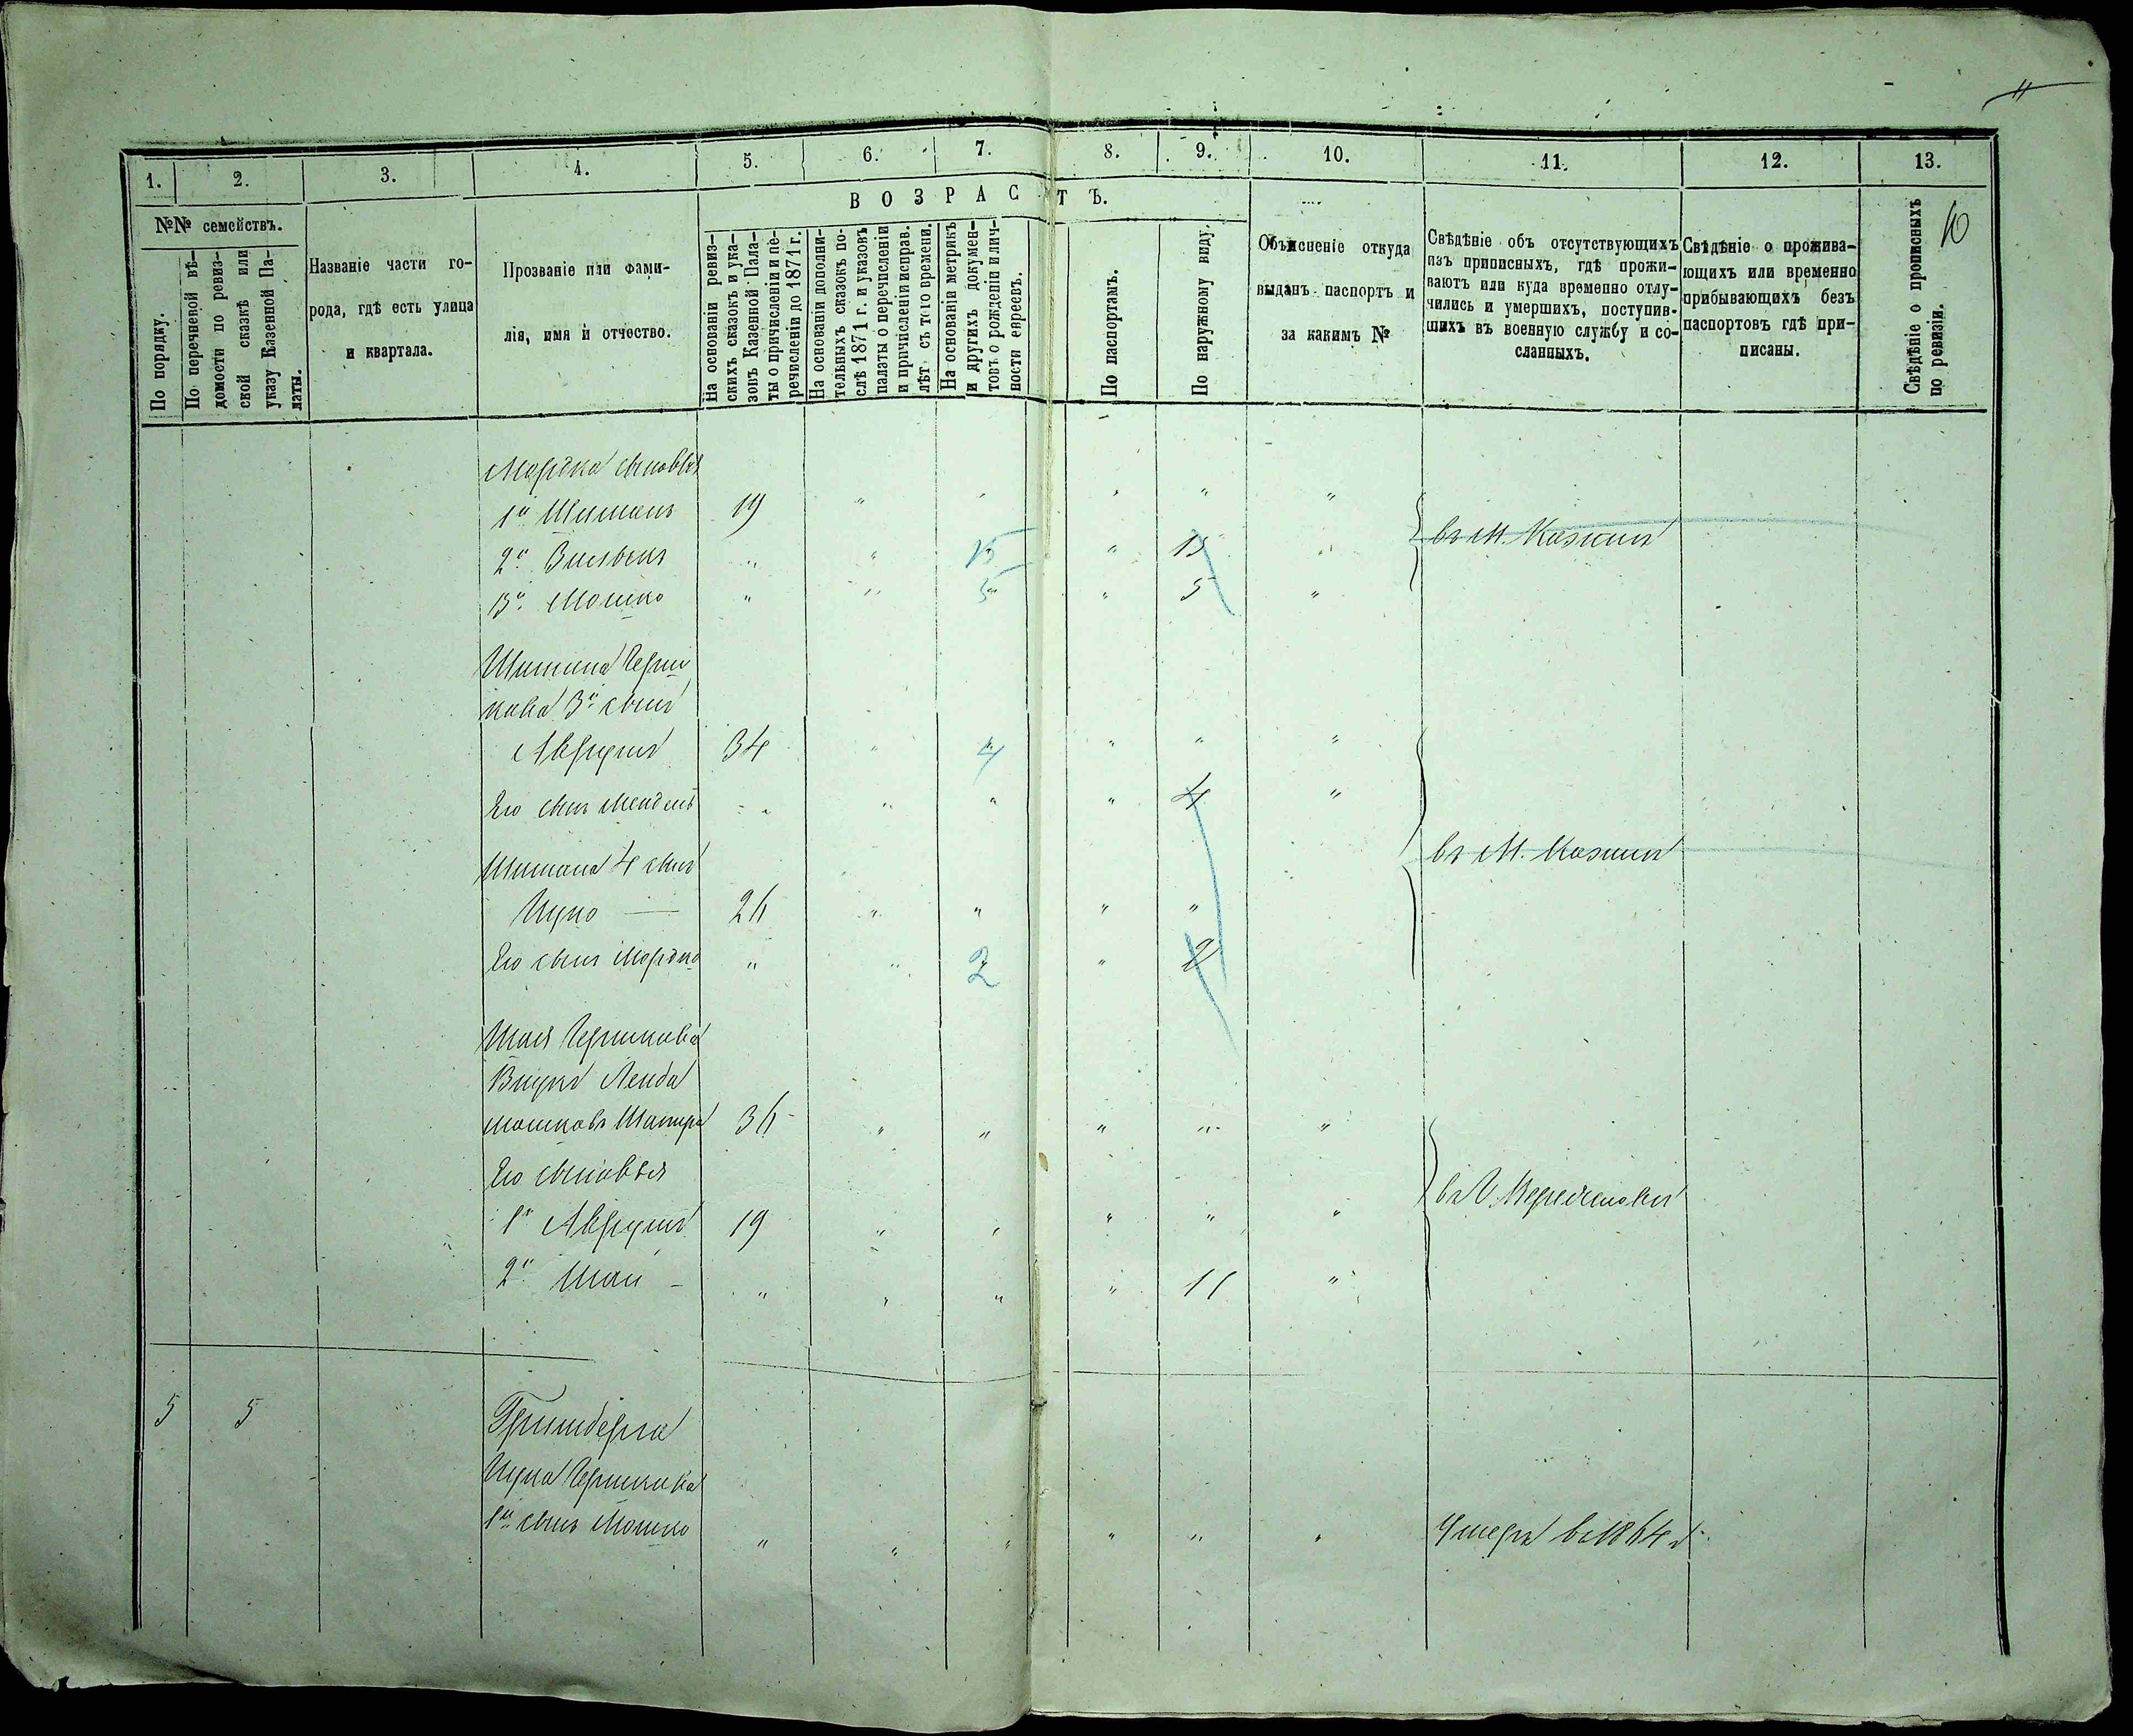 11
10
1. 2. 3. 4. 5. 6. 7. 8. 9. 10. 11. 12. 13.
№№ семействъ.
По порядку.
По перечневой вѣ-
домости по ревиз-
ской сказкѣ или
указу Казенной Па-
латы.
Названіе части го-
рода, гдѣ есть улица
и квартала.
Прозваніе или фами-
лія, имя и отчество.
ВОЗРАСТЪ.
На основаніи ревиз-
скихъ сказокъ и ука-
зовъ Казенной Пала-
ты о причисленіи и пе-
речисленіи до 1871 г.
На основаніи дополни-
тельныхъ сказокъ по-
слѣ 1871 г. и указовъ
палаты о перечисленіи
и причисленіи исправ.
лѣт. съ того времени.
На основаніи метрикъ
и другихъ докумен-
товъ о рожденіи и лич-
ности евреевъ.
По паспортамъ.
По наружному виду.
Объясненіе откуда
выданъ паспортъ и
за какимъ №
Свѣдѣніе объ отсутствующихъ
изъ приписныхъ, гдѣ прожи-
ваютъ или куда временно отлу-
чились и умершихъ, поступив-
шихъ въ военную службу и со-
сланныхъ.
Свѣдѣніе о прожива-
ющихъ или временно
прибывающихъ безъ
паспортовъ гдѣ при-
писаны.
Свѣдѣніе о прописныхъ
по ревизіи.
Мордка сыновья
1й Шимонъ 19 " " " " "
въ М.
2й " " 15 " 15 "
3й Мошко " " 5 " 5 "
Шимона Герш
кова 3й сынъ
Аврумъ 34 " 4 " " "
Его сынъ Мендель " " " " 4 "
въ М.
Шимона 4 сынъ
Ицко — 26 " " " "
Его сынъ Мордко " " 2 " 2
Шая Гершкова
Внукъ Лейба
Мошковъ Шапира 36 " " " " "
Его сыновья
въ
1й Аврумъ 19 " " " " "
2й Шая - " " " " 11 "
5 5 Гринберга
Ицка Гершкова
1й сынъ Мошко " " " " " " Умеръ въ 1864 г.